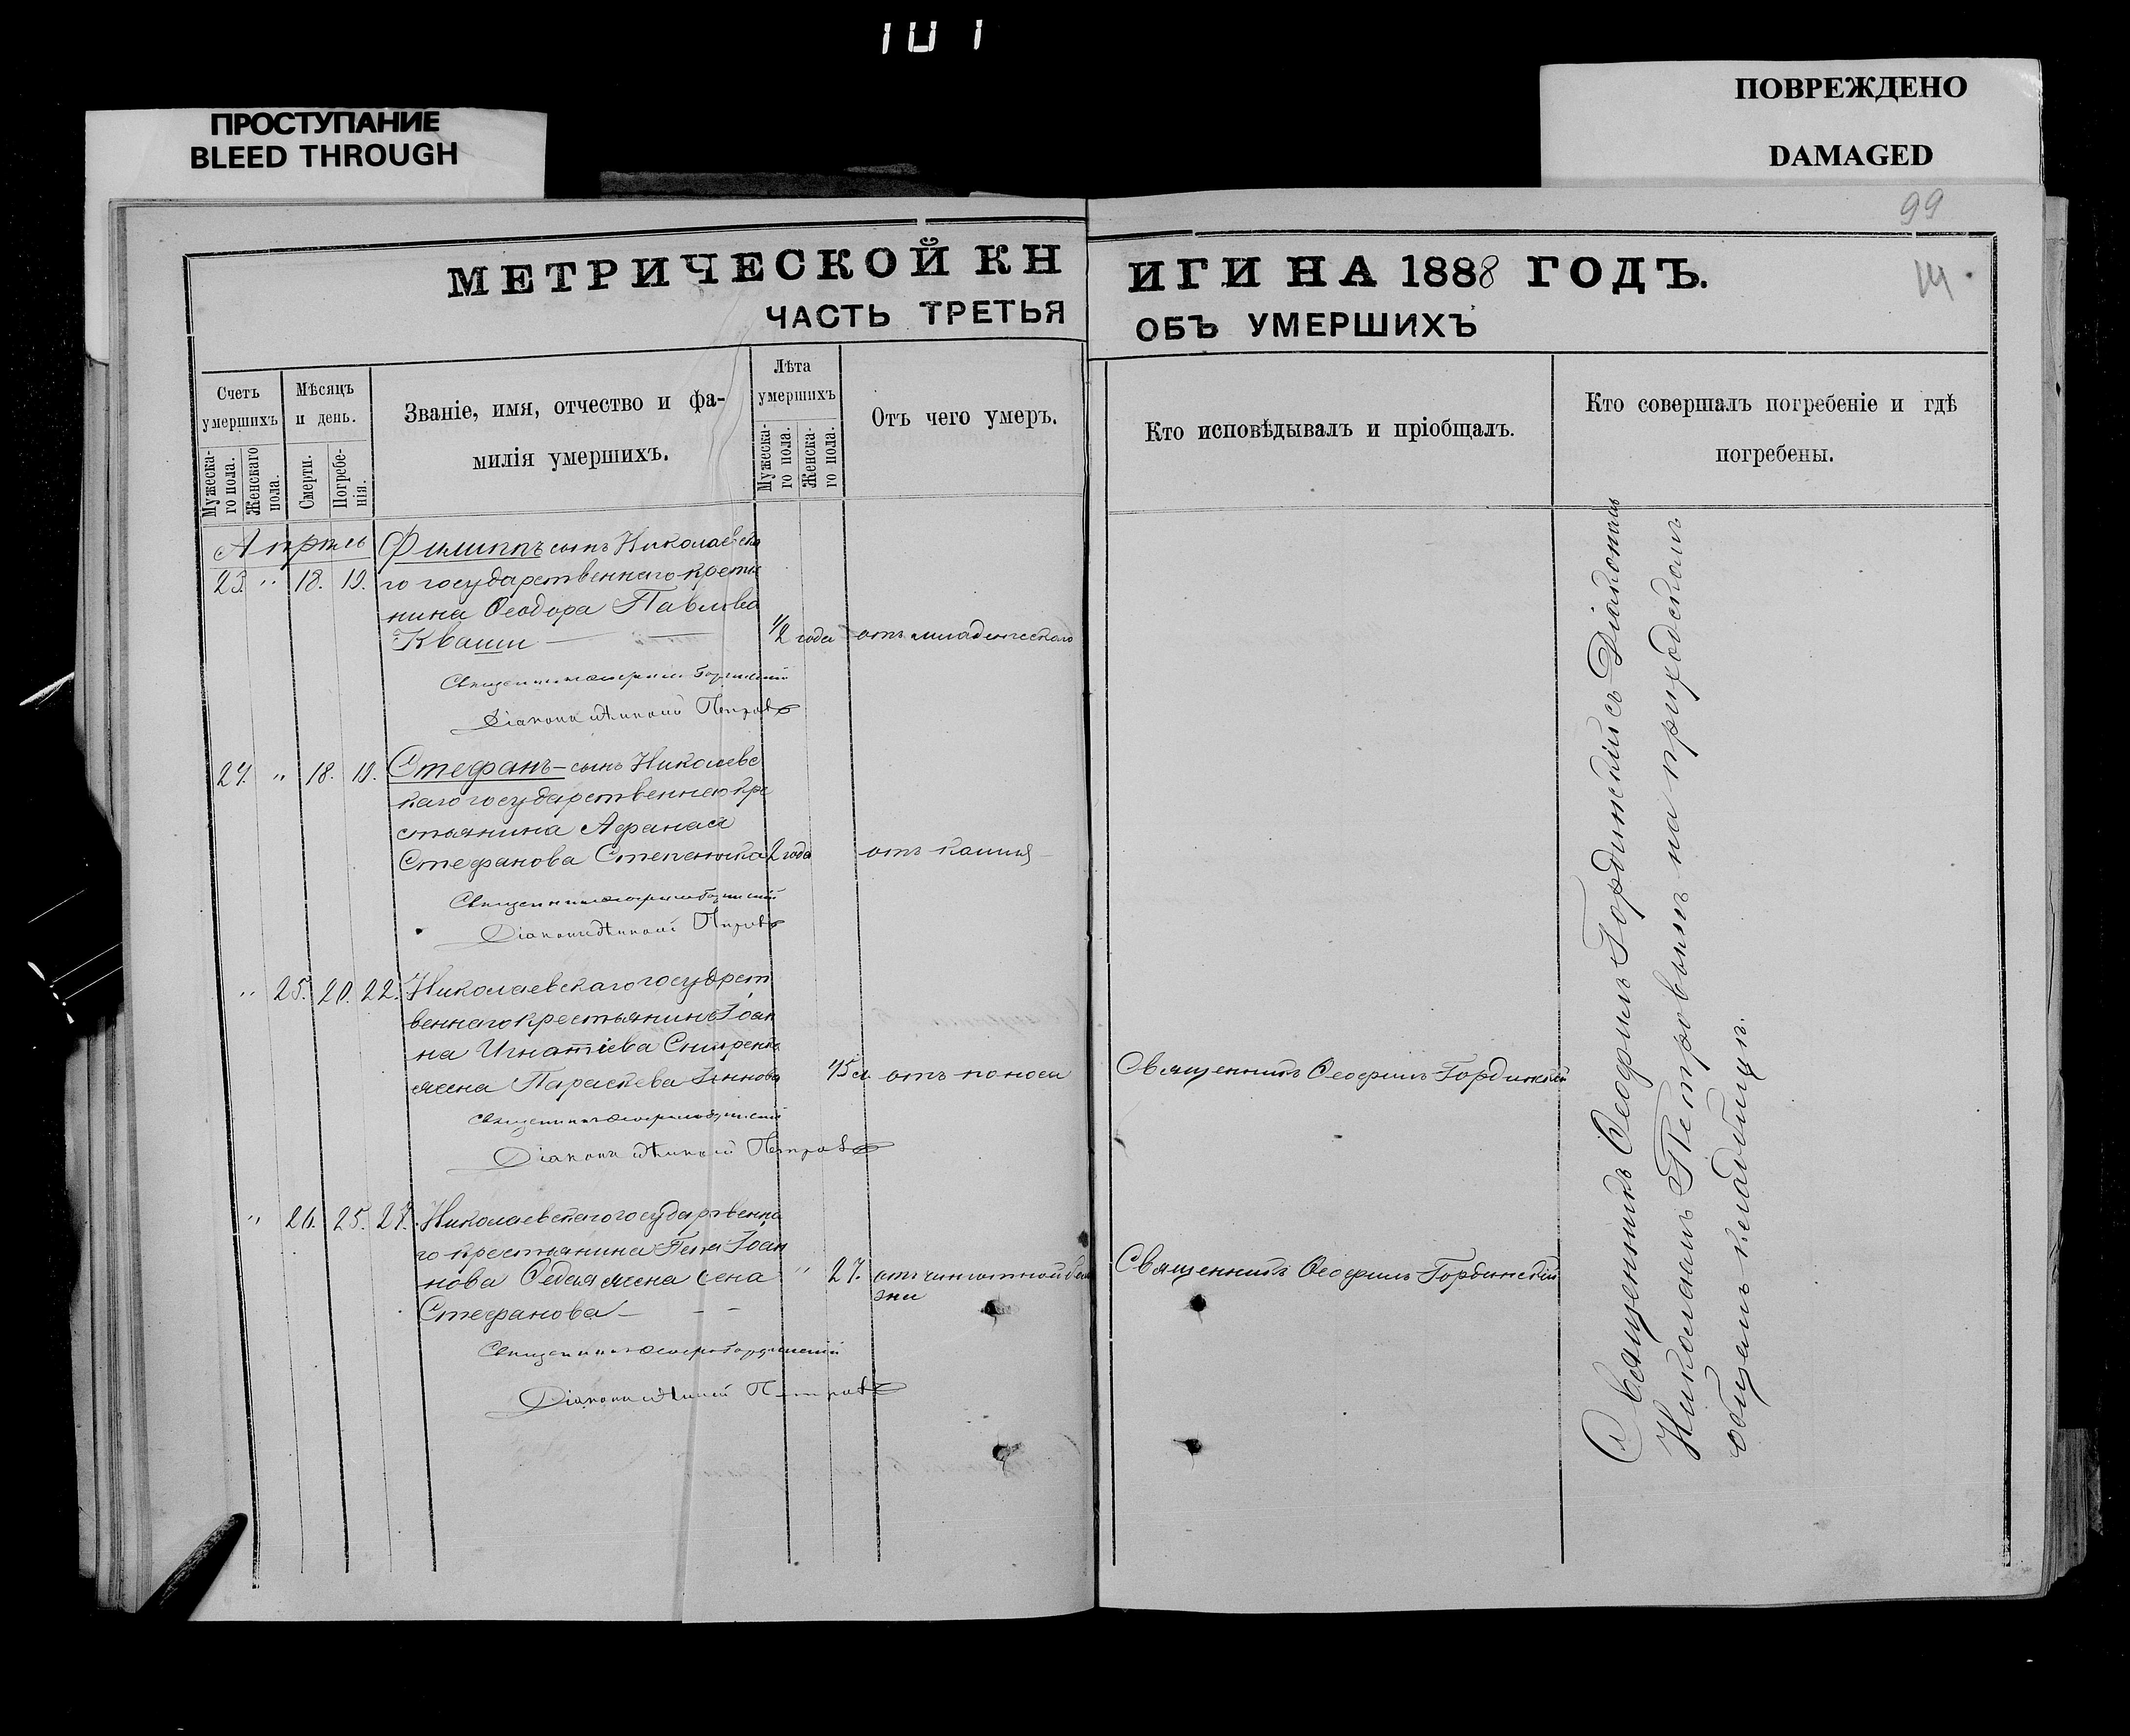 101
ПРОСТУПАНИЕ
BLEED THROUGH
ПОВРЕЖДЕНО
DAMAGED
99
МЕТРИЧЕСКОЙ КНИГИ НА 1888 ГОДЪ.
ЧАСТЬ ТРЕТЬЯ ОБЪ УМЕРШИХЪ
Счетъ умершихъ
Мужеска-го пола.
Женскаго пола.
Мѣсяцъ и день.
Смерти.
Погребе-нія.
Званіе, имя, отчество и фа-
милія умершихъ.
Лѣта умершихъ
Мужеска-го пола.
Женска-го пола.
Отъ чего умеръ.
Кто исповѣдывалъ и пріобщалъ.
Кто совершалъ погребеніе и гдѣ
погребены.
Апрѣль Филиппъ сынъ Николаевска
23. " 18. 19. го государственнаго крестья
нина Ѳеодора Павлова
Кваши — 1/2 года отъ младенческаго
Священникъ Ѳеофилъ Гординскій
Діаконъ Николай Петровъ
24. " 18. 19. Стефанъ - сынъ Николаевс
каго государственнаго кре
стьянина Афанасія
Стефанова 2 года отъ кашля
Священникъ Ѳеофилъ Гординскій
Діаконъ Николай Петровъ
" 25. 20. 22. Николаевскаго государст
веннаго крестьянина Іоан
на Игнатіева
жена Параскева 45 отъ поноса Священникъ Ѳеофилъ Гординскій
Священникъ Ѳеофилъ Гординскій
Діаконъ Николай Петровъ
" 26. 25. 27. Николаевскаго государственна
го крестьянина Петра Іоан
нова жена " 27. отъ болѣ Священникъ Ѳеофилъ Гординскій
Стефанова — зни
Священникъ Ѳеофилъ Гординскій
Діаконъ Николай Петровъ
Священникъ Ѳеофилъ Гординскій съ Діакономъ
Николаемъ Петровымъ на приходскомъ
общемъ кладбищѣ.